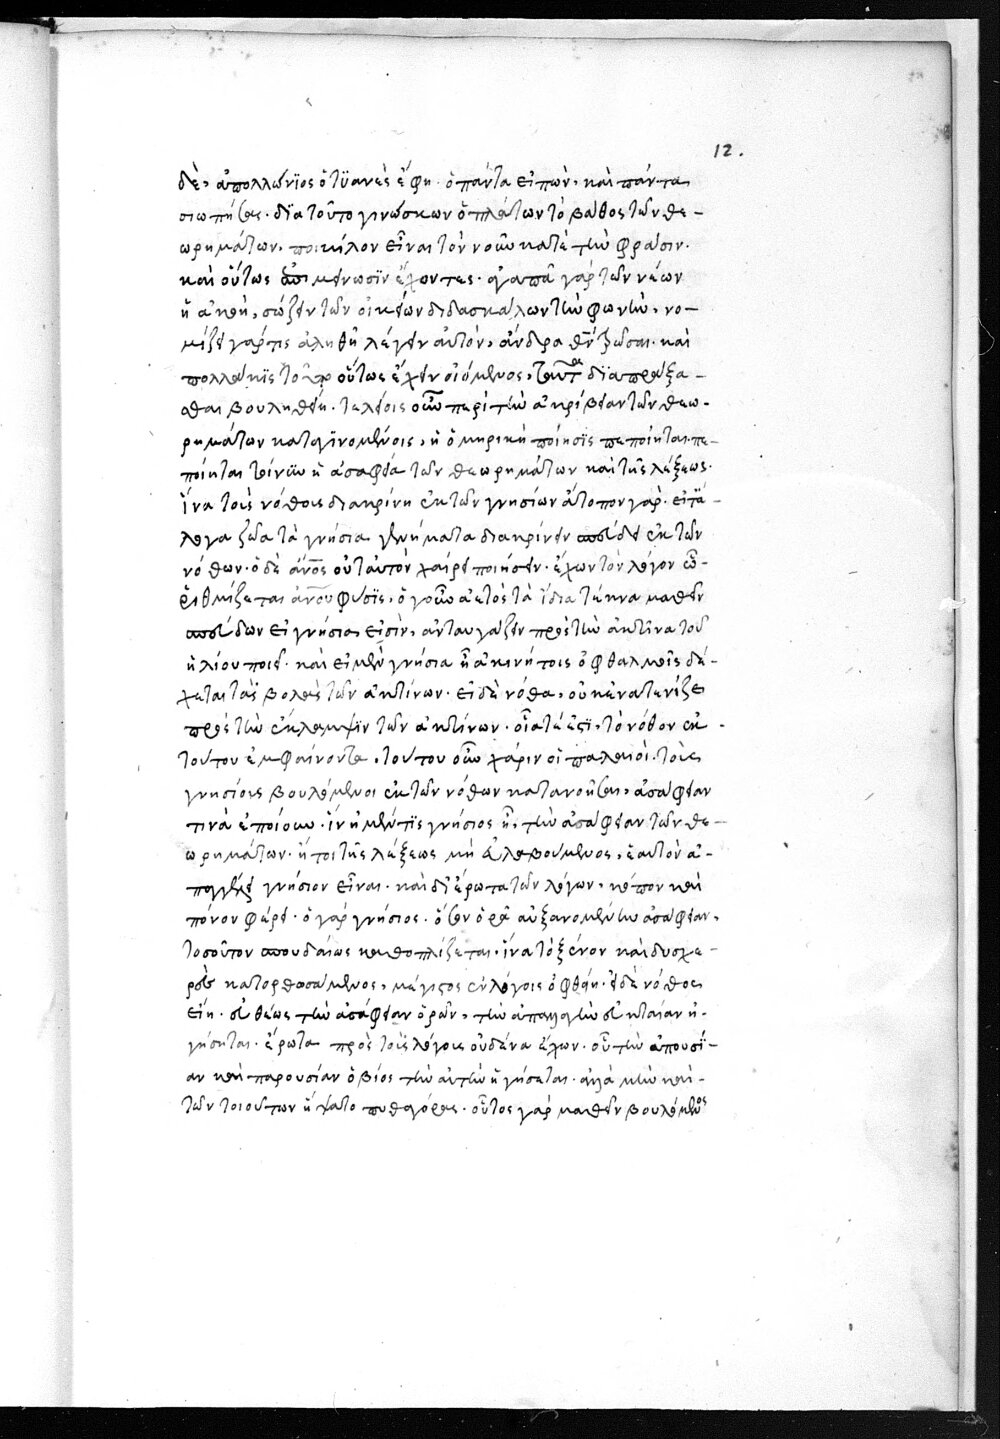 12.
δὲ, ἀπολλώνϊος ὁ τϋανεὺς ἔφη. ὁ πάντα εἰπὼν, καὶ πάντα
σιωπήσας. διατοῦτο γινώσκων ὁ πλάτων τὸ βάθος τῶν θε-
ωρημάτων, ποικίλον εἶναι τὸν νοῦν κατὰ τὴν φράσιν.
καὶ οὕτως μένωσϊν ἔχοντες. ἀγαπᾶ γὰρ τῶν νέων
ἡ ἀκοὴ, σώζειν τῶν οἰκείων διδασκάλων τὴν φωνὴν, νο-
μίζει γάρ τις ἀληθῆ λέγειν αὐτὸν, ἄνδρα καὶ
πολλάκϊς τὸ οὕτως ἔχειν οἰόμενος, ταῦτα δϊαπράξα-
σθαι βουληθείη. τελείοις οὖν περὶ τὴν ἀκρίβειαν τῶν θεω-
ρημάτων καταγϊνομένοις, ἡ ὁμηρικὴ ποίησϊς πεποίηται. πε-
ποίηται τοίνυν ἡ ἀσαφεία τῶν θεωρημάτων καὶ τῆς λέξεως.
ἵνα τοὺς νόθους διακρίνη ἐκ τῶν γνησίων ἄτοπον γὰρ. εἰ τὰ
λογα ζῶα τὰ γνήσια γεννήματα διακρίνειν σπεύδει ἐκ τῶν
νόθων. ὁ δὲ ἄνος οὐ ταυτὸν χαίρει ποιήσειν. ἔχων τὸν λόγον ὧ-
ῥυθμίζεται ἀνου φύσϊς, ὁ γοῦν ἀετὸς τὰ ἴδια τέκνα μαθεῖν
σπεύδων εἰ γνήσια, εἰσὶν, ἀνταυγάζειν πρὸς τὴν ἀκτῖνα τοῦ
ἡλίου ποιεῖ. καὶ εἰ μὲν γνήσια ἦ ἀκινήτοις ὀφθαλμοῖς δέ-
χεται τὰς βολὰς τῶν ἀκτίνων. εἰ δὲ νόθα, οὐκ ἀνατενίζει
πρὸς τὴν ἐκλαμψϊν τῶν ἀκτίνων. οἷα τέ ἐστϊ, τὸ νόθον ἐκ
τούτου ἐμφαίνοντα, τούτου οὖν χάριν οἱ παλαιοὶ. τοὺς
γνησίους βουλόμενοι ἐκ τῶν νόθων κατανοῆσαι, ἀσαφείαν
τινὰ ἐποίουν. ἵν' ἡ μέν τϊς γνήσιος ἦ, τὴν ἀσαφείαν τῶν θε-
ωρημάτων. ἤτοι τῆς λέξεως μὴ εὐλαβούμενος, ἑαυτὸν ἀ-
παγγείλῃ γνήσιον εἶναι. καὶ δι' ἔρωτα τῶν λόγων, κόπον καὶ
πόνον φέρει. ὁ γὰρ γνήσιος. ὅσον ὁρᾶ αὐξανομένην ἀσαφείαν,
τοσοῦτον σπουδαίως καθοπλίζεται. ἵνα τὸ ξένον καὶ δυσχε-
ρὲς κατορθωσάμενος, μέγιστος ἐν λόγοις ὀφθείη. εἰ δὲ νόθος
εἴη. εὐθέως τὴν ἀσάφειαν ὁρῶν, τὴν ἀπαλλαγὴν εὐκταίαν ἡ-
γήσηται. ἔρωτα πρὸς τοὺς λόγους οὐδένα ἔχων. οὗ τὴν ἀπουσί-
αν καὶ παρουσίαν ὁ βίος τὴν αὐτὴν ἡγήσεται. ἀλλὰ μὴν καὶ
τῶν τοιούτων ἥψατο πυθαγόρας. οὗτος γὰρ μαθεῖν βουλόμενος